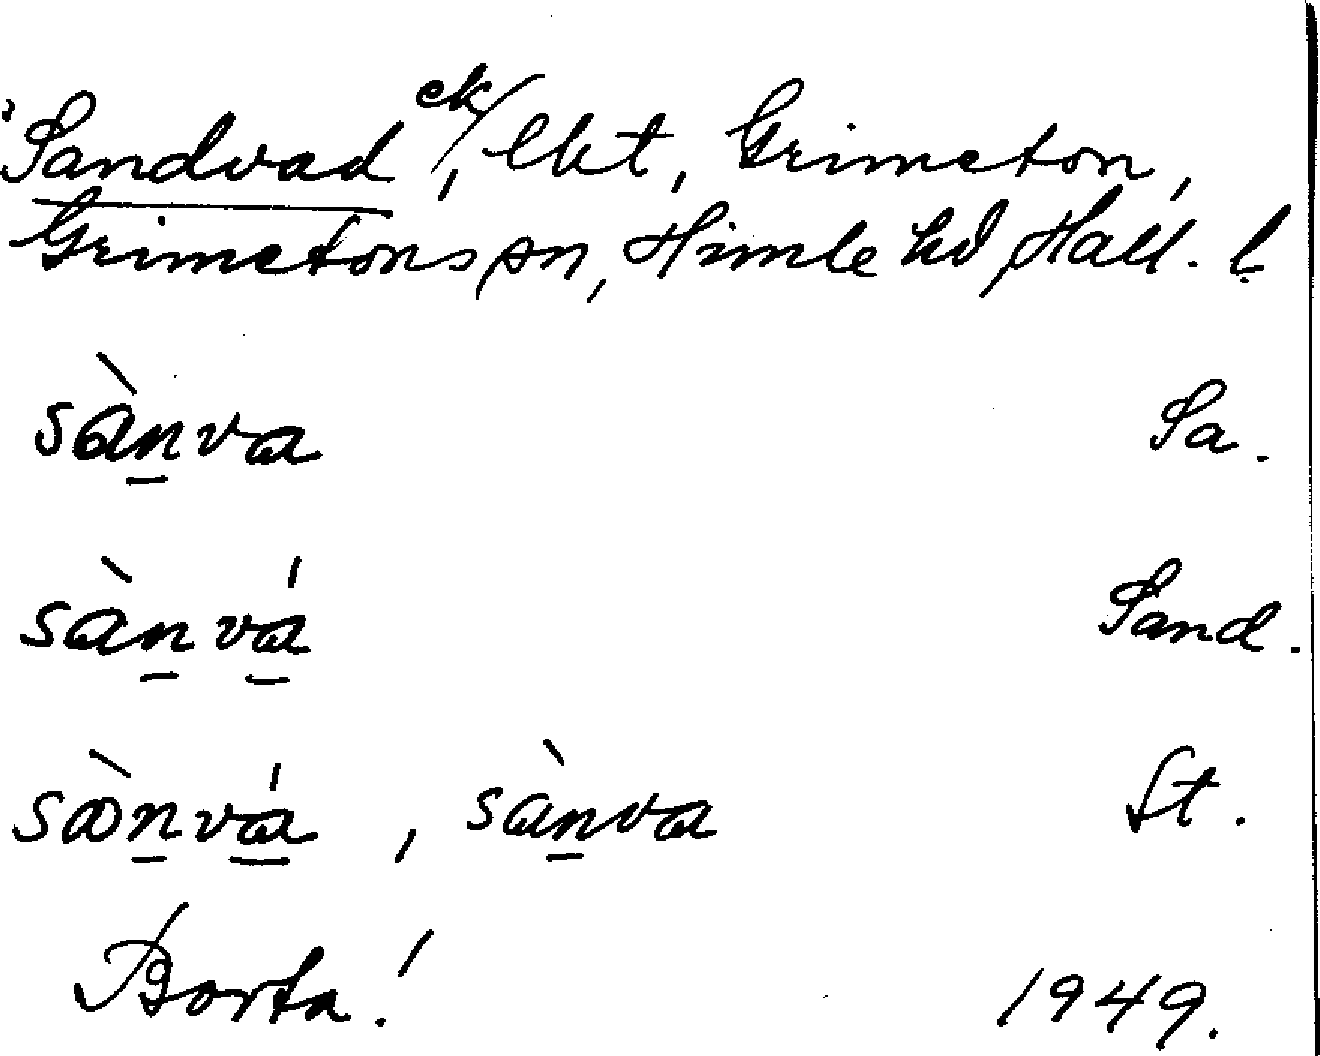 Sandvad ek/, lkt, Grimeton,
Grimetons sn, Himle hd, Hall. l.
sànva Sa.
sànvá Sand.
sànvá, sànva St.
Borta! 1949.